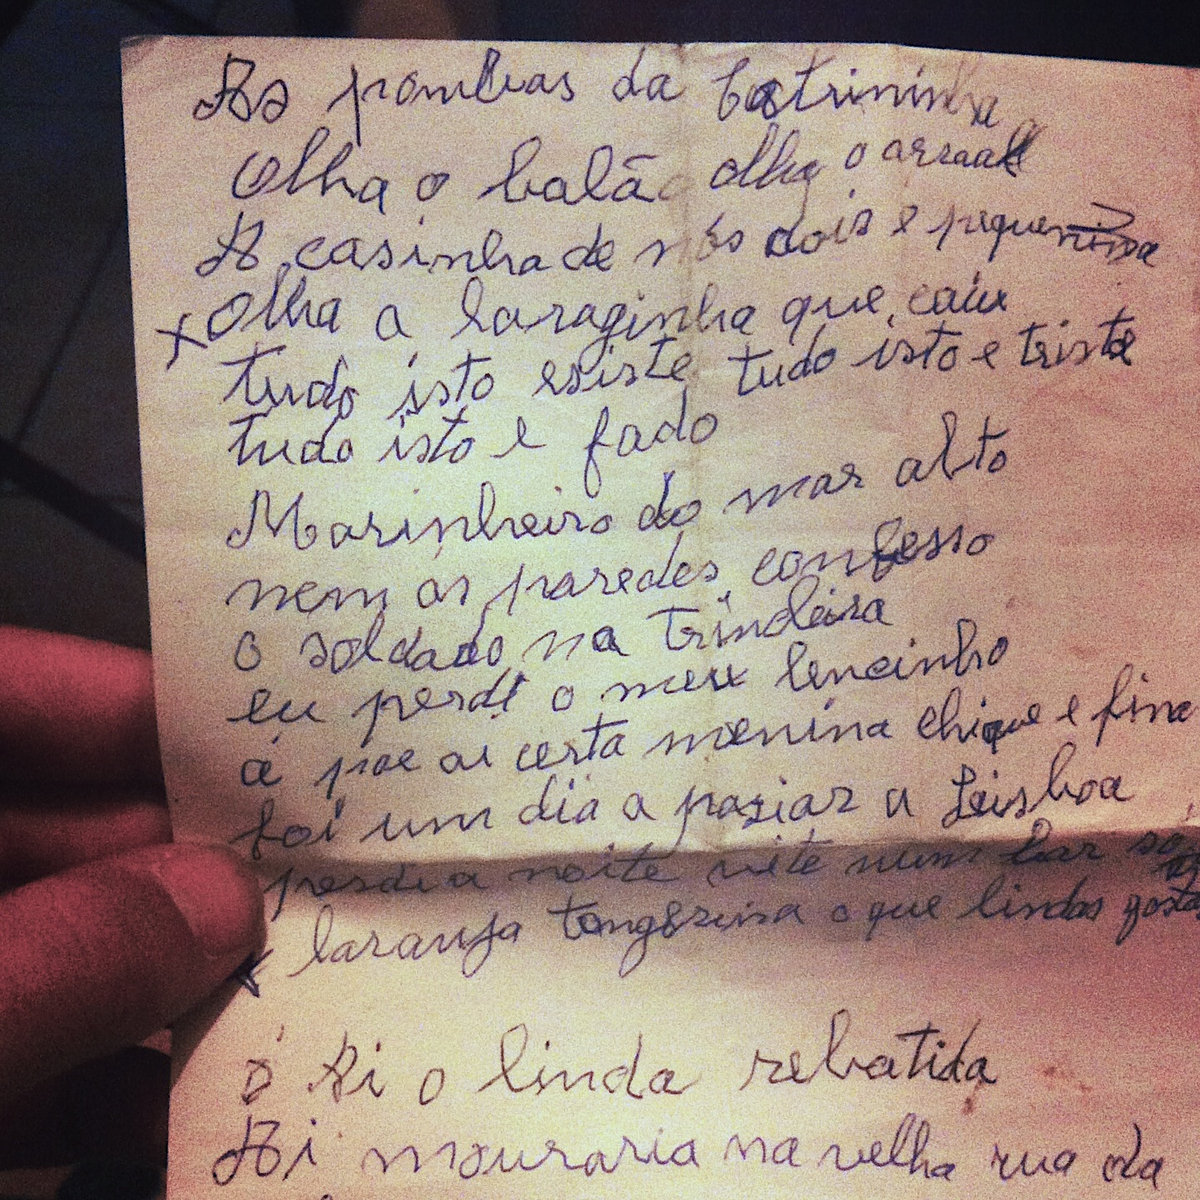 As pombas da Catrininha
Olha o balão olha o arraal
A casinha de nós dois e pequenina
x Olha a laraginha que caiu
tudo isto esiste tudo isto e triste
tudo isto e fado
Marinheiro do mar alto
nem as paredes confesso
o soldado na trincleira
eu perdi o meu lencinho
á poe ai certa menina chique e fina
foi um dia a pasiar a Leisboa
perdi a noite num bar
x laranja tangerina o que lindos
Ó Ai o linda rebatida
Ai mouraria na velha rua da